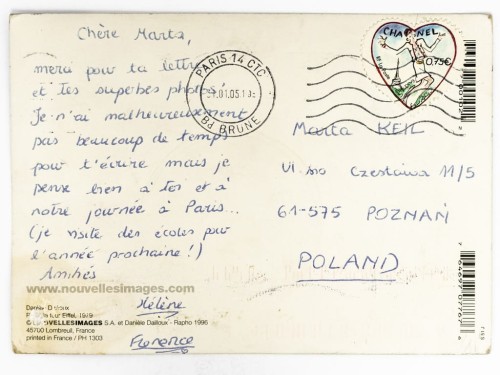 Chère Marta,
merci pour ta lettre
et tes superbes photos!
Je n'ai malheureusement
pas beaucoup de temps
pour t'écrire mais je
pense bien à toi et à
notre journée à Paris...
(je visite des écoles pour
l'année prochaine!)
Amitiés
Hélène
Florence
www.nouvellesimages.com
Tour Eiffel, 1979
© NOUVELLESIMAGES S.A. et Danièle Dailloux - Rapho 1996
45700 Lombreuil, France
printed in France / PH 1303
PARIS 14 CTC
Bd BRUNE
CHANEL
0,75€
Marta KEIL
Ul. Czesława 11/5
61-575 POZNAŃ
POLAND